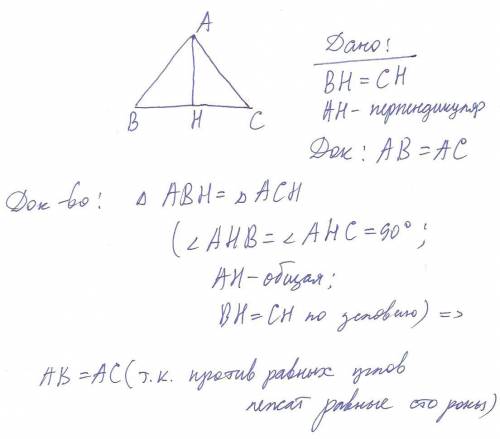 A
B H C
Дано:
BH = CH
AH - перпендикуляр
Док: AB = AC
Док-во: △ ABH = △ ACH
(∠AHB = ∠AHC = 90°;
AH - общая;
BH = CH по условию) =>
AB = AC (т.к. против равных углов
лежат равные стороны)